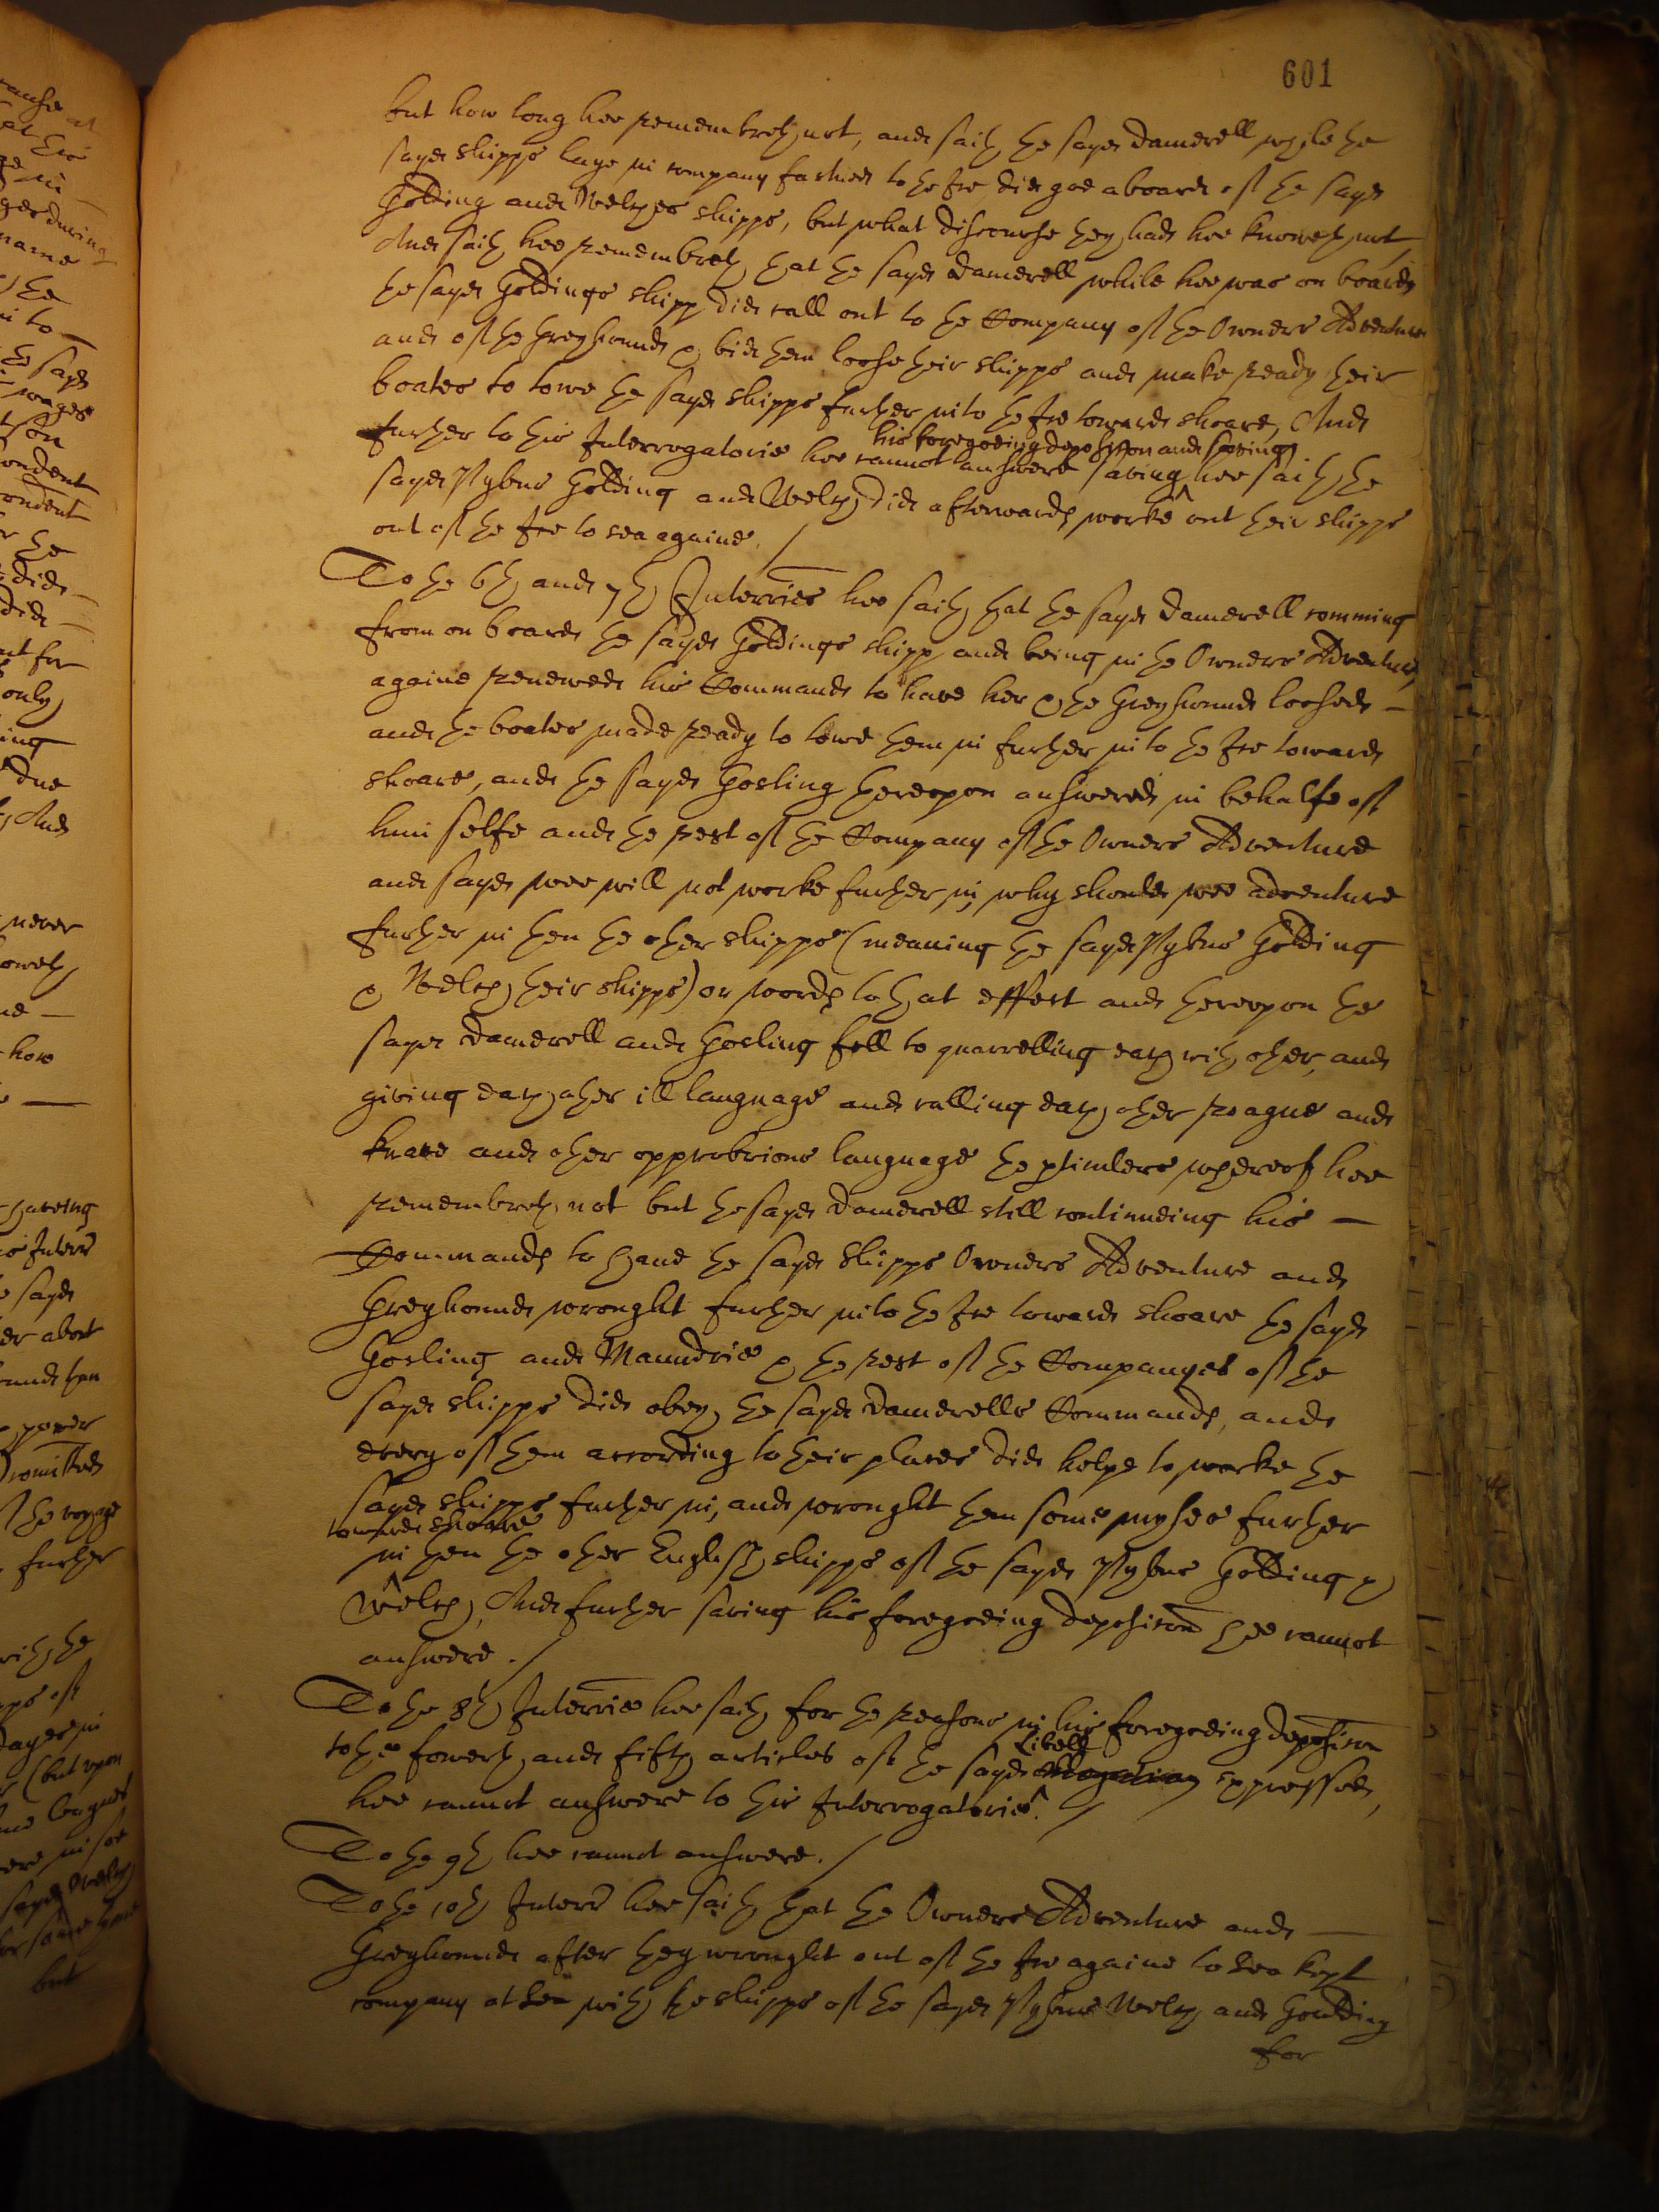 601
but how long hee remembreth not, and saith the sayd Damerell while the
sayd shipps laye in company fastned to the Ice, did goe aboard of the sayd
Golding and Welches shipps, but what discourse they had hee knoweth not
And saith hee remembreth that the sayd Damerell while hee was on board
the sayd Goldings shipp did call out to the Company of the Owners Adventure
and of the Greyhound & bid them loose their shipps and make ready their
boates to towe the sayd shipps further into the Ice towards shoare, And
his foregoeing deposition and saving
further to this Interrogatorie hee cannot answere saving hee saith the
sayd Pybus Golding and Welch did afterwards worke out their shipps
out of the Ice to sea againe. /
To the 6th and 7th Interries hee saith that the sayd Damerell comming
from on board the sayd Goldings shipp and being in the Owners Adventure,
againe renewed his Commands to have her & the Greyhound loosed -
and the boates made ready to towe them in further into the Ice towards
shoare, and the sayd Gosling thereupon answered in behalfe of
him selfe and the rest of the Company of the Owners Adventure
and sayd wee will not worke further in, why should wee adventure
further in then the other shipps (meaning the sayd Pybus Golding
& Welch their shipps) or words to that effect and thereupon the
sayd Damerell and Gosling fell to quarrelling each with other, and
giving each other ill language and calling each other roague and
knave and other opprobrious language the particulers whereof hee
remembreth not but the sayd Damerell still continueing his -
Commands to have the sayd shipps Owners Adventure and
Greyhound wrought further into the Ice towards shoare the sayd
Gosling and Maundrie & the rest of the Companyes of the
sayd shipps did obey the sayd Damerells Commands, and
every of them according to their places did helpe to worke the
sayd shipps further in, and wrought them some myles further
towards shoare
in then the other English shipps of the sayd Pybus Golding &
Welch, And further saving his foregoeing deposition hee cannot
answere. /
To the 8th Interrie hee saith for the reasons in his foregoeing deposition
Libell
to the fowerth and fifth articles of the sayd allegation expressed,
hee cannot answere to this Interrogatorie. /
To the 9th hee cannot answere. /
To the 10th Interr hee saith that the Owners Adventure and -
Greyhound after they wrought out of the Ice againe to Sea kept
company at Sea with the shipps of the sayd Pybus Welch and Goulding
for